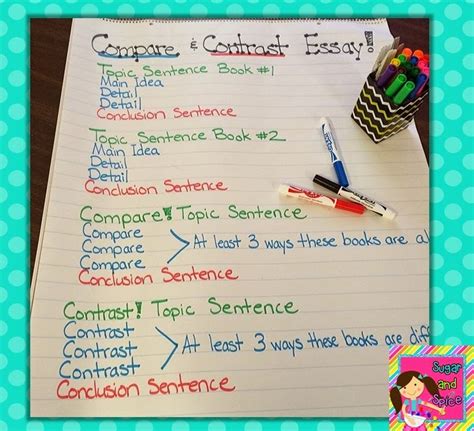 Compare & Contrast Essay!
Topic Sentence Book #1
Main Idea
Detail
Detail
Conclusion Sentence
Topic Sentence Book #2
Main Idea
Detail
Detail
Conclusion Sentence
Compare! Topic Sentence
Compare
Compare
Compare
At least 3 ways these books are a
Conclusion Sentence
Contrast! Topic Sentence
Contrast
Contrast
Contrast
At least 3 ways these books are diff
Conclusion Sentence
Sugar
and
Spice